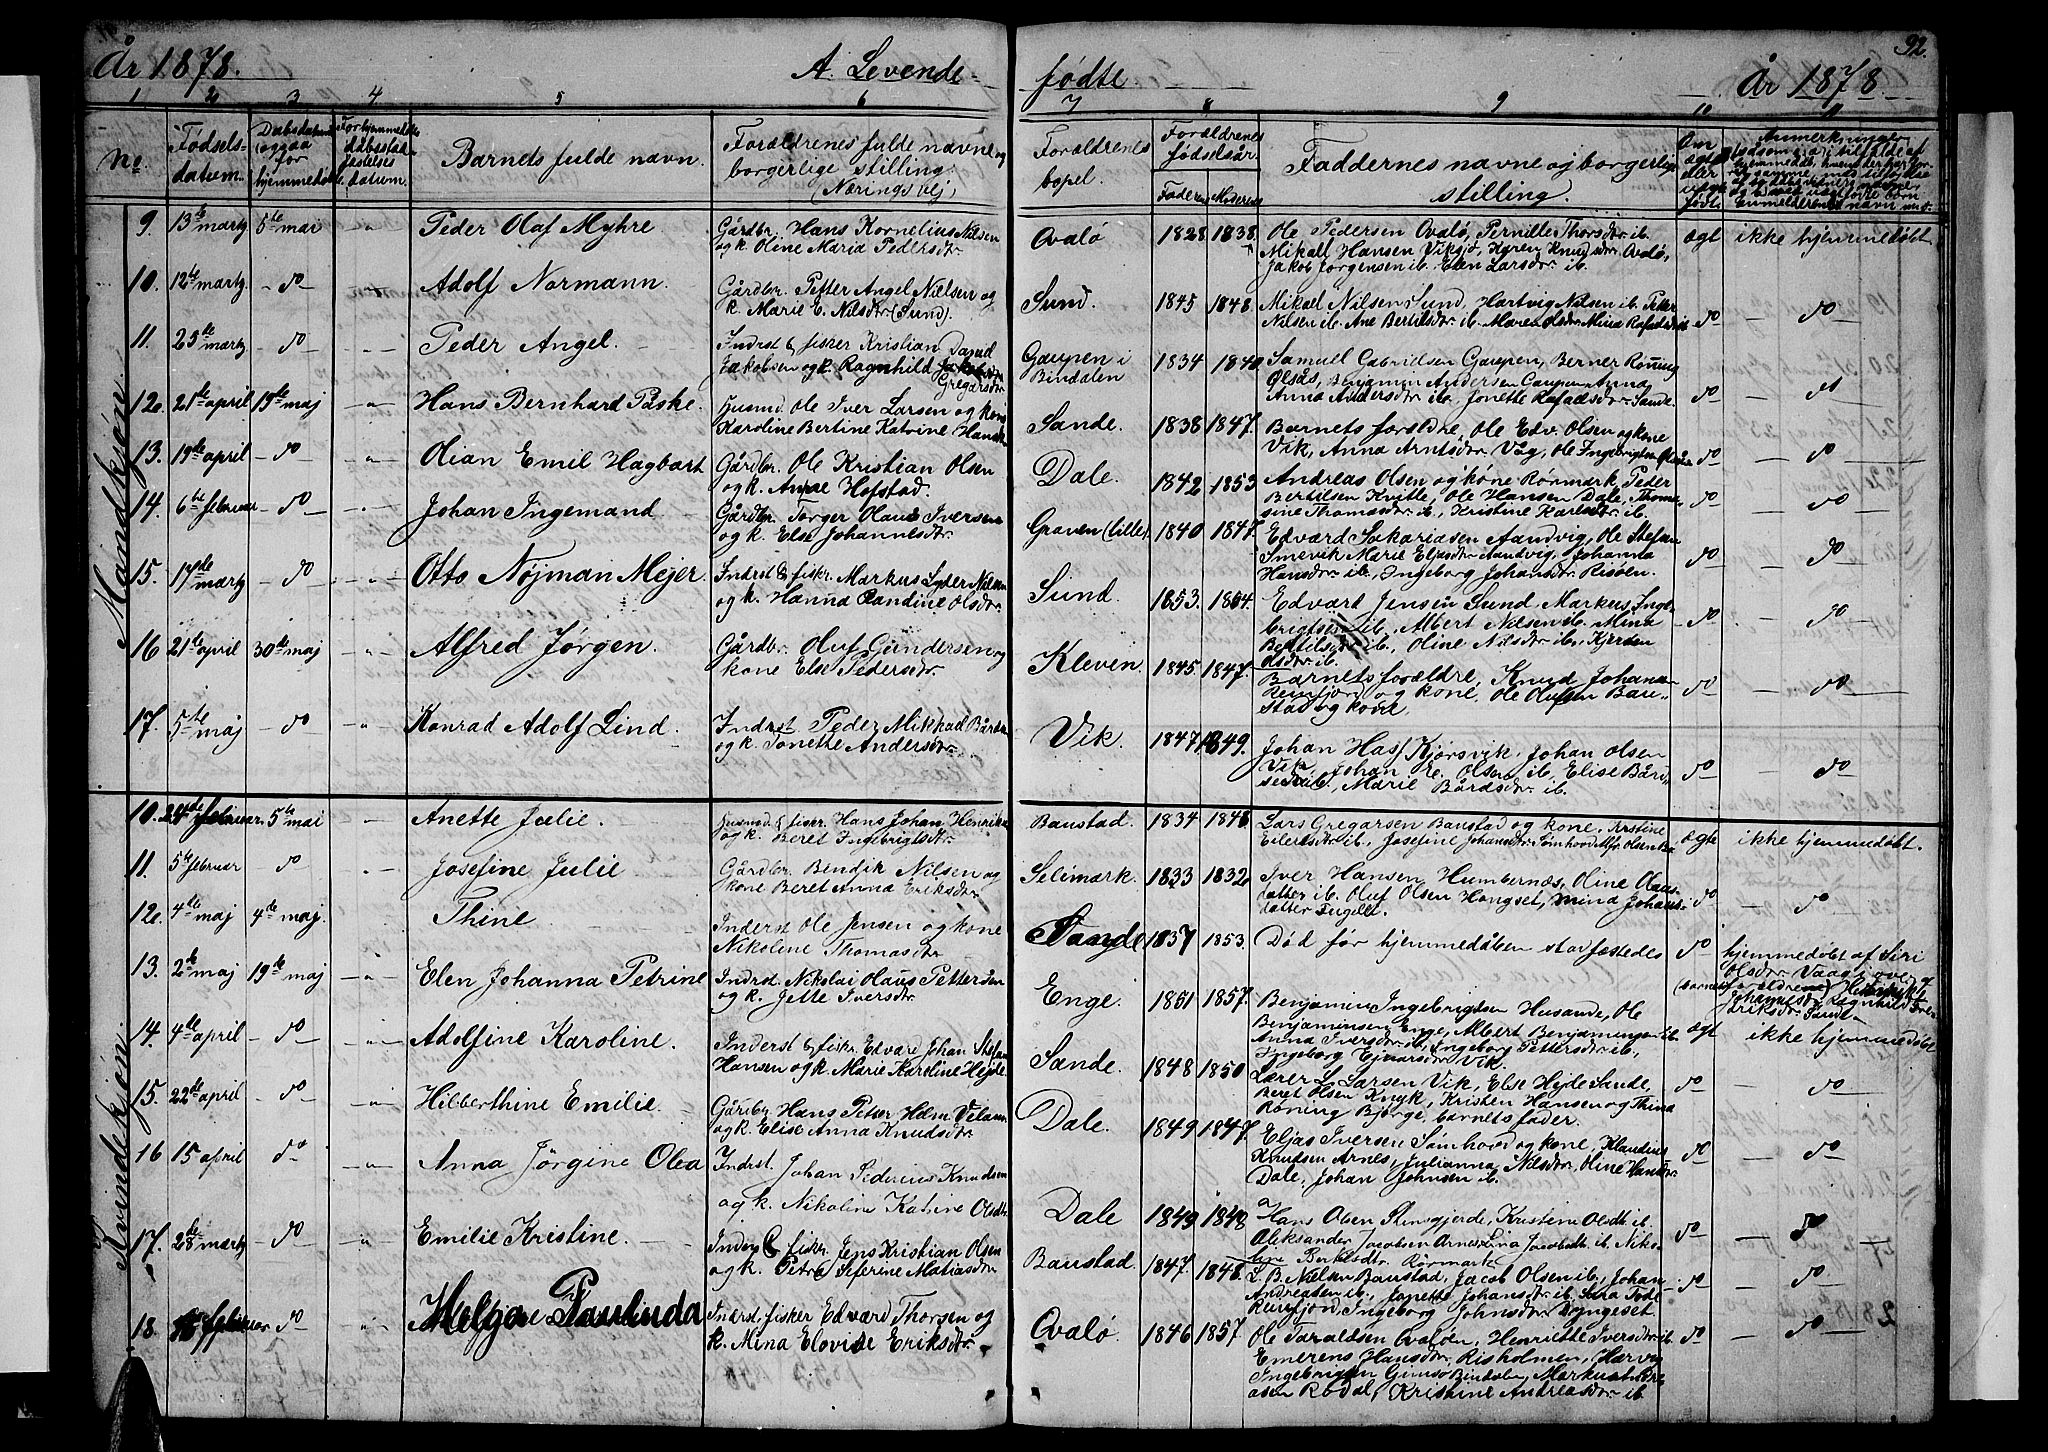 År 1878. A. Levende-
1 2 3 4 5 6
No. Fødsels-datum. Daabsdatum oggaa for hjemmedøbt Barnets fulde navn. Forældrenes fulde navne og borgerlige stilling. (Næringsvej)
Mandkjøn.
9. 13de marty 5te mai " Peder Olaf Myhre. Gårdbr. Hans Kornelius Nilsen
og k. Oline Maria Pedersdr.
10. 12te marty do " Adolf Normann. Gårdbr. Petter Angel Nielsen og
k. Marie E. Nilsdr (Sund).
11. 25de marty do " Peder Angel. Indrst & fisker Kristian David
Jakobsen og k. Ragnhild
Gregarsdr
12. 21de april 19de maj " Hans Bernhard Påske. Husmd. Ole Iver Larsen og kone
Karoline Bertine Katrine Hansdr
13. 19de april do " Olian Emil Hagbart Gårdbr. Ole Kristian Olsen
og k. Anne Hofstad.
14. 6te februar do " Johan Ingemand Gårdbr. Torger Olaus Iversen
og k. Else Johannesdtr.
15. 17de marty do " Otto Nøjman Mejer. Indrst & fiskr. Markus Lyder Nilsen
og k. Hanna Randine Olsdr.
16 21de april 30de maj " Alfred Jørgen. Gårdbr. Oluf Gundersen og
kone Else Pedersdr.
17. 5te maj do " Konrad Adolf Lind. Indrst Peder Mikkal Bårdsen
og k. Tonette Andersdr.
Kvindekjøn.
10. 24de februar. 5te mai " Anette Julie. Husmd. & fisker. Hans Johan Henriksen
og k. Beret Ingebrigtsdtr.
11. 5te februar do " Josefine Julie Gårdbr Bendik Nilsen og
kone Beret Anna Eriksdr.
12. 4de maj 4de maj. Thine. Inderst Ole Jensen og kone
Nikoline Thomasdr
13. 2de maj 19de maj " Elen Johanna Petrine Indrst. Nikolai Olaus Pettersen
og k. Jette Iversdtr
14. 4de april do " Adolfine Karoline. Inderst & fiskr. Edvard Johan Stefan
Hansen og k. Marie Karoline Hejde
15. 22de april do " Hilberthine Emilie. Gårdbr Hans Peter Holm Velami
og k. Elise Anna Knudsdtr.
16 15 april do " Anna Jørgine Olea Indrst. Johan Sederius Knudsen
og k. Nikoline Katrine Olsdtr.
17. 28de marty do " Emilie Kristine. Inders & fisker. Jens Kristian Olsen
og k. Petra Seferine Matiasdtr
18. februar do " Helga Paulinda Indrst, fisker Edvard Thorsen og
k. Mina Elovide Eriksdtr.
fødte. År 1878. 92.
7 8 9 10 11
Forældrenes bopel. Forældrenes fødselsår. Faderens Moderens Faddernes navne og borgerlige stilling. Om ægte eller uægte født. Anmerkninger
Ovalø 1828 1838 Ole Pedersen Ovalø, Pernille Thorsdr ib. ægt ikke hjemmedøbt
Mikall Hansen Viksjø, Karen Knudsdr. Ovalø,
Jakob Jørgensen ib. Elen Larsdr ib.
Sund. 1845 1848 Mikael Nilsen Sund, Hartvig Nilsen ib. Peter do do
Nilsen ib. Ane Bertilsdr ib. Maren Olsdr Mina Rafaelsdr ib
Gaupen i Bindalen 1834 1840 Samuel Gabrielsen Gaupen, Berner Røning do do
Ølsås, Benjamin Andersen Gaupen Anna
Anna Andersdr ib., Jonette Rafaelsdr Sande.
Sande. 1838 1847. Barnets forældre, Ole Edv. Olsen og kone do do
Vik, Anna Arntsdr. Våg, Ole Ingebrigtsen
Dale. 1842 1853 Andreas Olsen og kone Rørmark, Peder do do
Bertilsen Kvitle, Ole Hansen Dale, Thoma-
sine Thomasdr ib., Kristine Karlsdr ib.
Graven (lille) 1840 1847. Edvard Sakariasen Aandvig, Ole Stefan do do
Smevik Marie Eliasdr Aandvig, Johanna
Hansdr ib., Ingeborg Johansdr. Risøen.
Sund 1853. 1864. Edvard Jensen Sund, Markus Inge- do do
brigtsen ib., Albert Nilsen ib. Mina
Bertilsdr ib., Oline Nilsdr ib., Kjersten
Olsdr ib.
Kleven 1845. 1847. Barnets forældre, Knud Johans- do do
Reinfjord og kone, Ole Olufsen Bau-
stad og kone.
Vik. 1847. 1849. Johan Hasf Kjørsvik, Johan Olsen do do
Vik, Johan Chr. Olsen ib, Elise Bård-
ib., Marie Bårdsdr. ib.
Baustad. 1834 1846 Lars Gregarsen Baustad og kone, Kristine ægte ikke hjemmedøbt.
Eilertsdtr ib., Josefine Johansdtr Sømhovd
Selimark. 1833 1832 Iver Hansen Humbernæs, Oline Olaus- do do
datter ib. Oluf Olsen Hongset, Mina Johans-
datter
Sande 1837 1853. Død før hjemmedåben stadfæstedes do hjemmedøbt af Siri
Olsdr Vaag
Enge. 1861 1857. Benjamin Ingebrigtsen Husande, Ole ægt ikke hjemmedøbt
Benjaminsen Enge, Albert Benjaminsen ib
Anna Iversdtr ib, Ingeborg Pettersdr ib.
Ingeborg Ejnarsdr Vik.
Sande. 1848 1850 Lærer L. Larsen Vik, Else Hejde Sande, do do
Beret Olsen Knyk, Kristen Hansen og Thina
Røning Bjørge, barnets fader.
Dale. 1849 1847. Eljas Iversen Sømhovd og kone, Klaudius do do
Knudsen Arnes, Julianna Nilsdr, Oline Hansdr
Dale, Johan Johnsen ib.
Dale 1849 1848 Hans Olsen Stensgjerde, Kristine Olsdt. ib. do do
Aleksander Jacobsen Arnes, Lina Jacobsdt. ib. Niko-
line Bertelsdtr Rørmark.
Baustad. 1847. 1848. L. B. Nielsen Baustad, Jacob Olsen ib., Johan do do
Andreasen ib., Janette Johansdr ib.
Reinfjord, Ingeborg Johnsdtr Dyngeset
Ovalø. 1846 1857. Ole Taraldsen Ovaløen, Henriette Iversdtr ib. do do
Emerens Hansdtr, Risholmen, Harvig
Ingebrigtsen Gimsø Bindalen, Markus
Rødal, Kristine Andreasdtr ib